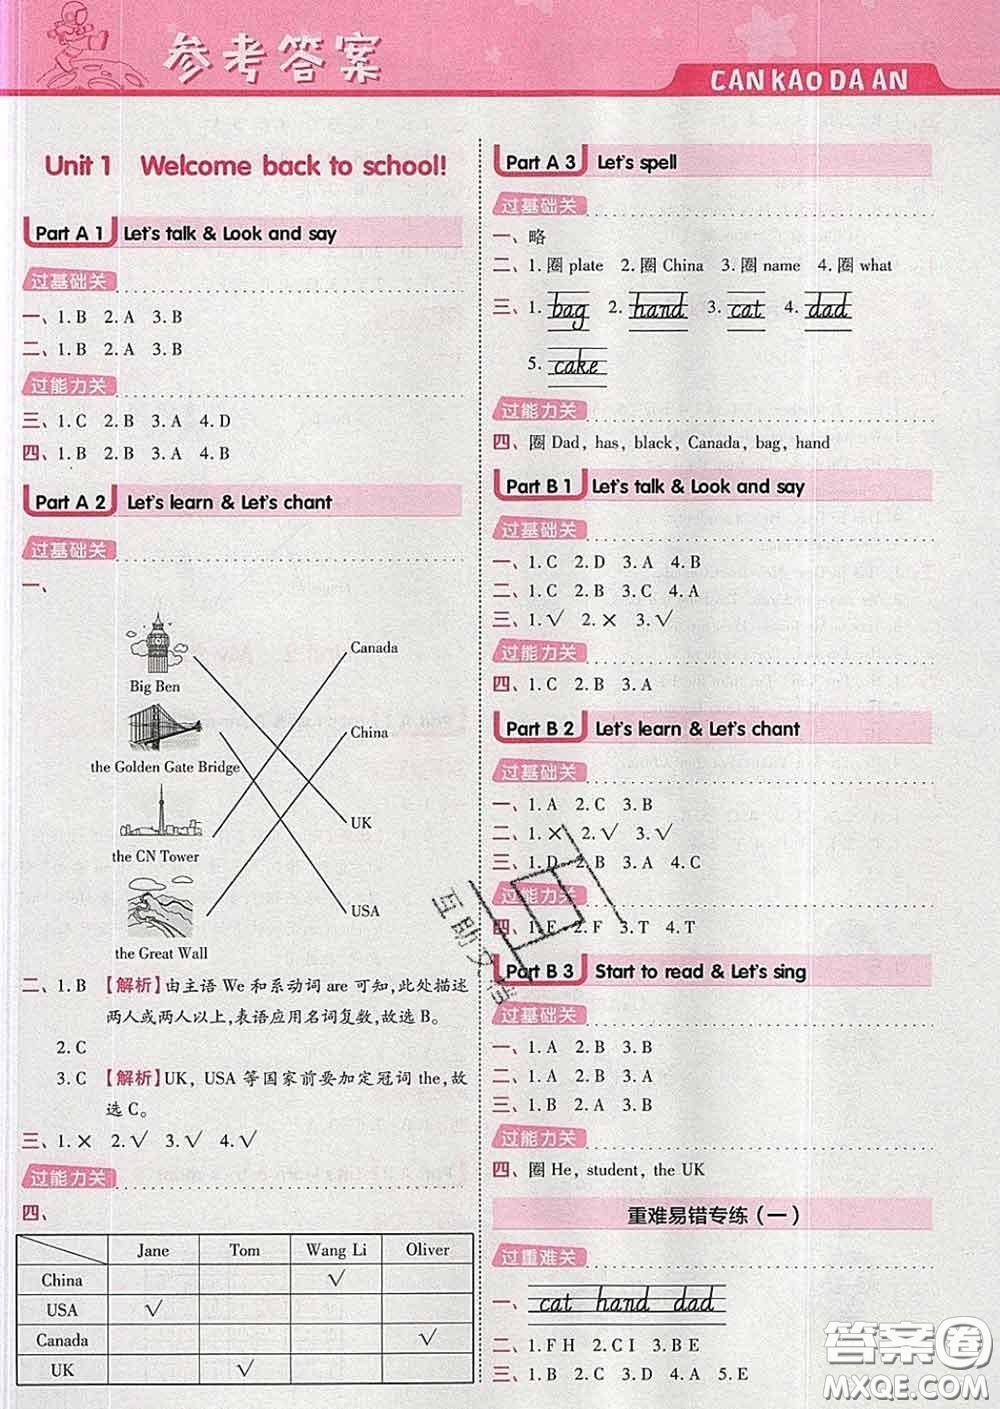 参考答案
CAN KAO DA AN
Unit 1 Welcome back to school!
Part A 1 Let's talk & Look and say
过基础关
一、1. B 2. A 3. B
二、1. B 2. A 3. B
过能力关
三、1. C 2. B 3. A 4. D
四、1. B 2. B 3. A 4. B
Part A 2 Let's learn & Let's chant
过基础关
一、
Canada
Big Ben
China
the Golden Gate Bridge
UK
the CN Tower
USA
the Great Wall
二、1. B 【解析】由主语 We 和系动词 are 可知,此处描述
两人或两人以上,表语应用名词复数,故选 B。
2. C
3. C 【解析】UK, USA 等国家前要加定冠词 the,故
选 C。
三、1. × 2. √ 3. √ 4. √
过能力关
四、
Jane Tom Wang Li Oliver
China √
USA √
Canada √
UK √
Part A 3 Let's spell
过基础关
一、略
二、1. 圈 plate 2. 圈 China 3. 圈 name 4. 圈 what
三、1. bag 2. hand 3. cat 4. dad
5. cake
过能力关
四、圈 Dad, has, black, Canada, bag, hand
Part B 1 Let's talk & Look and say
过基础关
一、1. C 2. D 3. A 4. B
二、1. C 2. B 3. C 4. A
三、1. √ 2. × 3. √
过能力关
四、1. C 2. B 3. A
Part B 2 Let's learn & Let's chant
过基础关
一、1. A 2. C 3. B
二、1. × 2. √ 3. √
三、1. D 2. B 3. A 4. C
过能力关
四、1. F 2. F 3. T 4. T
Part B 3 Start to read & Let's sing
过基础关
一、1. A 2. B 3. B
二、1. C 2. B 3. B
三、1. B 2. A 3. B
过能力关
四、圈 He, student, the UK
重难易错专练(一)
过重难关
一、cat hand dad
二、1. F H 2. C I 3. B E
三、1. C 2. D 3. B 4. A 5. E
答案圈
MXQE.COM